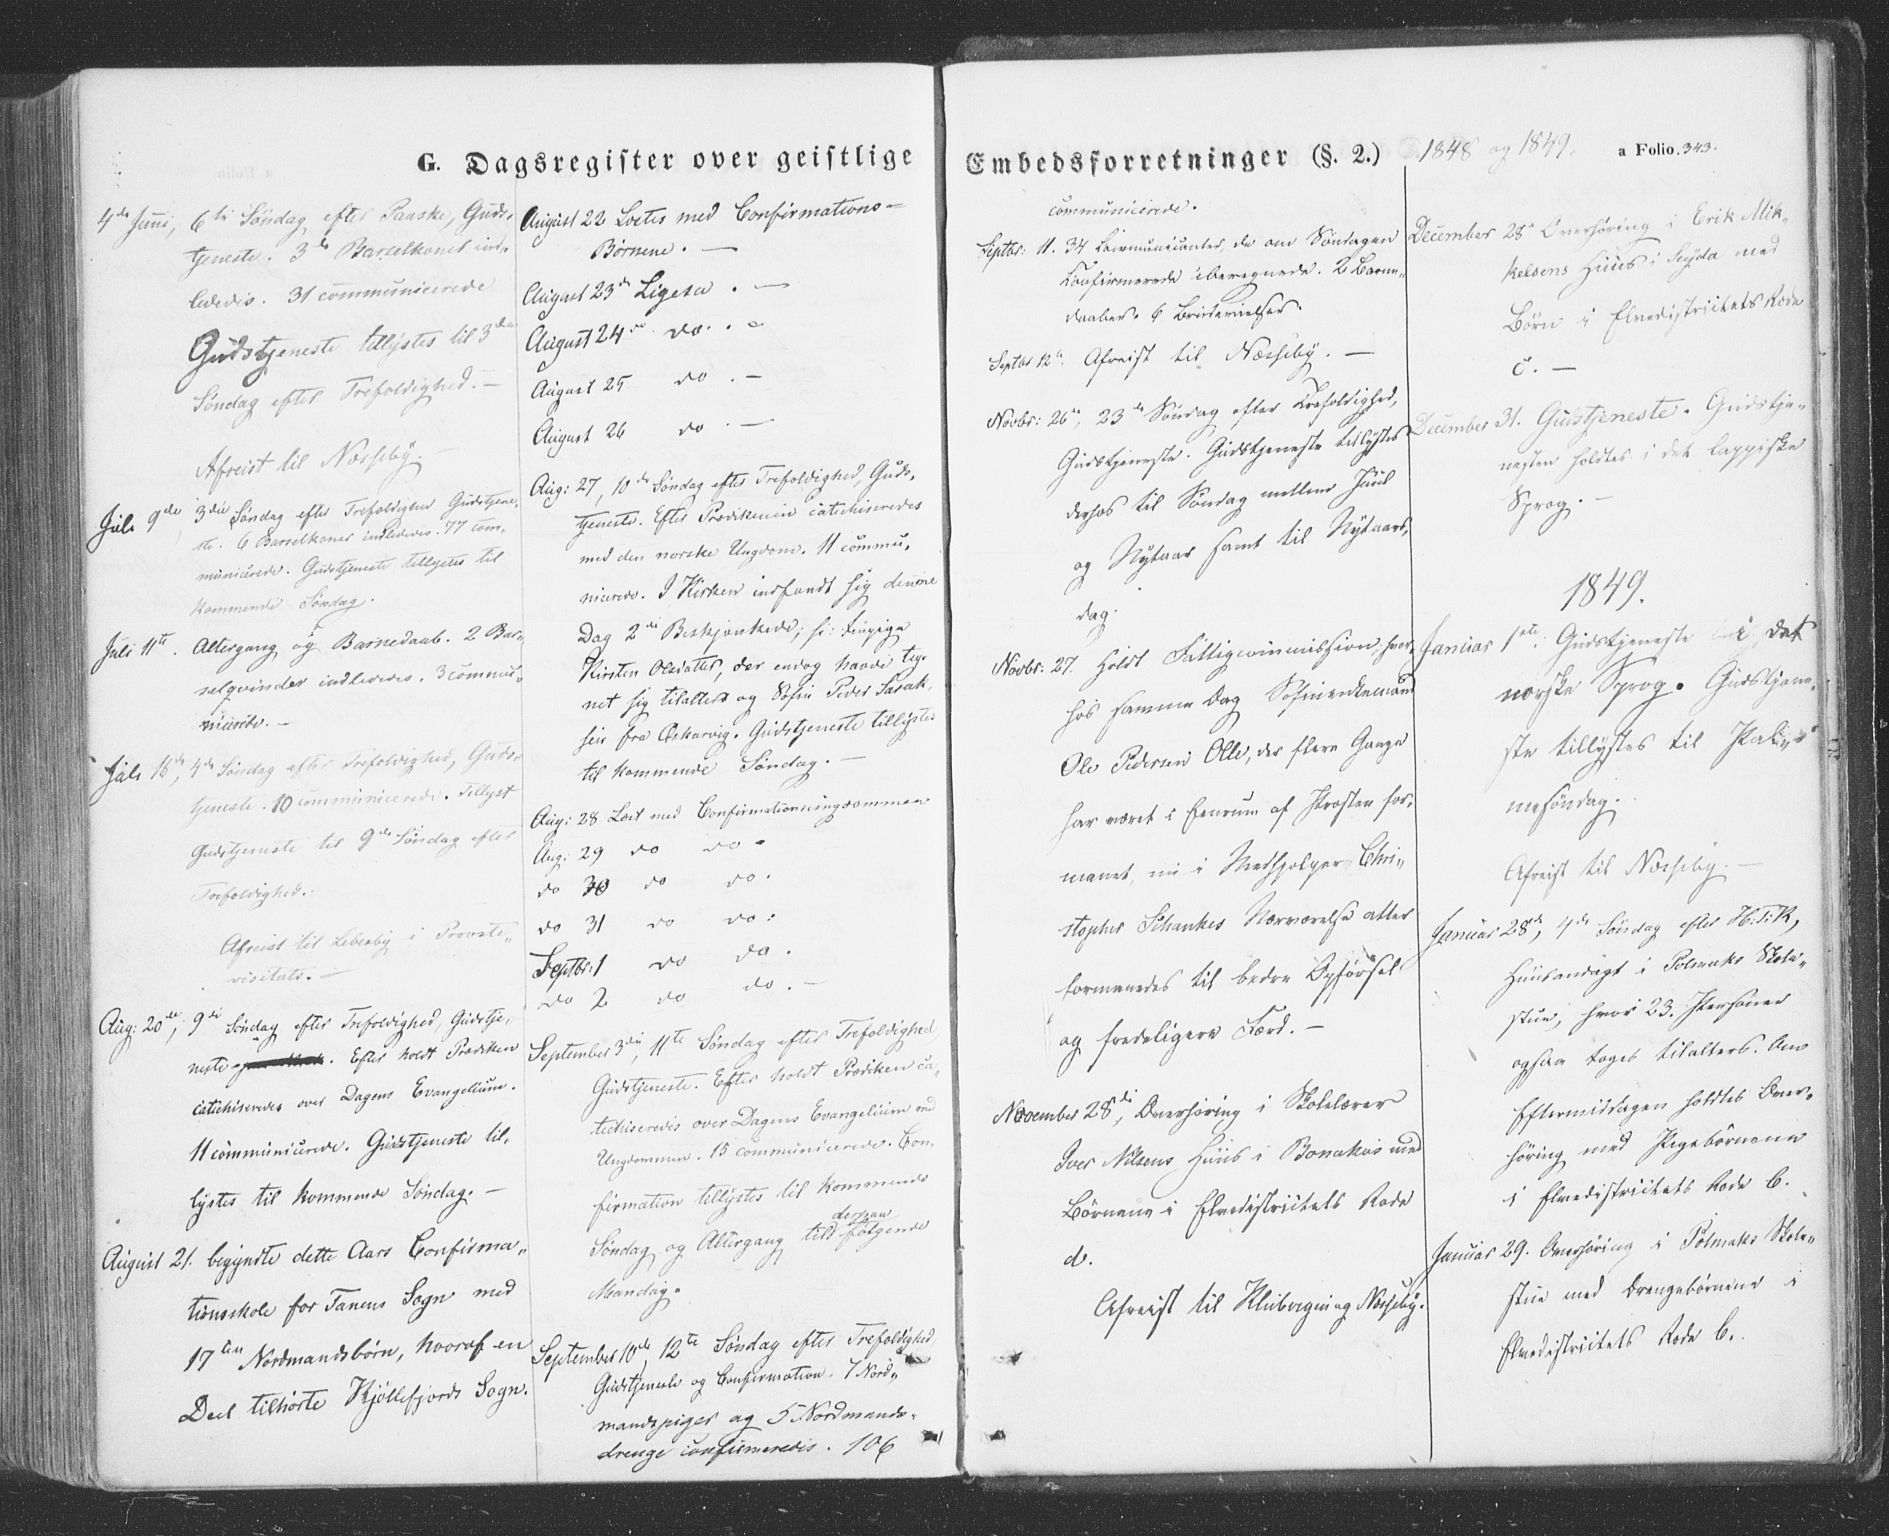 G. Dagsregister over geistlige
4de Juni, 6te Søndag efter Paaske, Guds-
tjeneste. 3de Barselkoner ind-
lededes. 31 communicerede
Gudstjeneste tillystes til 3die
Søndag efter Trefoldighed. —
Afreist til Næsseby. —
Juli 9de, 3die Søndag efter Trefoldighed Gudstjene-
ste. 6 Barselkoner indlededes. 77 com-
municerede. Gudstjeneste tillystes til
kommende Søndag.
Juli 11te. Altergang og Barnedaab. 2 Bar-
selqvinder indlededes. 3 commu-
nicerede. —
Juli 16de, 4de Søndag efter Trefoldighed, Guds-
tjeneste. 10 communicerede. Tillyst
Gudstjeneste til 9de Søndag efter
Trefoldighed.
Afreist til Lebesby i Provste-
visitats. —
Aug: 20de, 9de Søndag efter Trefoldighed, Gudstje-
neste. Efter holdt Prædiken
catechiseredes over Dagens Evangelium.
11 communicerede. Gudstjeneste til-
lystes til kommende Søndag. —
August 21. begyndte dette Aars Confirma-
tionsskole for Tanens Sogn med
17ten Nordmandsbørn, hvoraf en
Deel tilhørte Kjøllefjords Sogn.
August 22 Læstes med Confirmations-
Børnene. —
August 23de Ligesaa. —
August 24de do. -
August 25 do. —
August 26 do. —
Aug: 27, 10de Søndag efter Trefoldighed, Guds-
tjeneste. Efter Prædikenen catechiseredes
med den norske Ungdom. 11 commu-
nicerede. I Kirken indfandt sig denne
Dag 2de Beskjænkede; 
Kirsten Olsdatter, der endog havde teg-
net sig tilalters og Peder Isak-
sen fra . Gudstjeneste tillystes
til kommende Søndag. —
Aug: 28 Læst med Confirmationsungdommen
Aug: 29 do do -
do 30 do do.
do 31 do do.
Septbr: 1 do do.
do 2 do do. —
September 3die, 11te Søndag efter Trefoldighed
Gudstjeneste. Efter holdt Prædiken ca-
techiseredes over Dagens Evangelium med
Ungdommen. 15 communicerede. Con-
firmation tillystes til kommende
Søndag og Altergang til derpaa følgende
Mandag.
September 10de, 12te Søndag efter Trefoldighed,
Gudstjeneste og Confirmation. 7 Nord-
mandspiger og 5 Nordmands-
drenge confirmeredes. 106
Embedsforretninger (§. 2.) 1848 og 1849. a Folio. 343.
communicerede.
Septbr: 11. 34 Communicanter, de om Søndagen
Confirmerede iberegnede. 2 Barne-
daaber. 6 Brudevielser.
Septbr 12te. Afreist til Næsseby. —
Novbr: 26de, 23de Søndag efter Trefoldighed,
Gudstjeneste. Gudstjeneste tillystes
derhos til Søndag mellem Juul
og Nytaar samt til Nytaars-
dag.
Novbr: 27. Holdt Fattigcommission, hvor-
hos samme Dag
Ole Pedersen Olle, der flere Gange
har været i Eenrum af Præsten for-
manet, nu i Medhjelper Chri-
stopher Schankes Nærværelse atter
formanedes til bedre Opførsel
og fredeligere Færd. —
November 28de, Overhøring i Skolelærer
Iver Nilsens Huus i Bonakas med
Børnene i Elvedistriktets Rode
d.
Afreist til Klubvigen og Næsseby.
December 28de Overhøring i Erik Mik-
kelsens Huus i Seyda med
Børn i Elvedistriktets Rode
c. —
December 31. Gudstjeneste. Gudstje-
nesten holdtes i det lappiske
Sprog. —
1849.
Januar 1ste. Gudstjeneste i det
norske Sprog. Gudstjene-
ste tillystes til Pal-
mesøndag.
Afreist til Næsseby. —
Januar 28de, 4de Søndag efter H.3.K,
Huusandagt i Polmaks Skole-
stue, hvor 23. Personer
ogsaa toges tilalters. Om
Eftermiddagen holdtes Over-
høring med Pigebørnene
i Elvedistriktets Rode b.
Januar 29. Overhøring i Polmaks Skole-
stue med Drengebørnene i
Elvedistriktets Rode b.